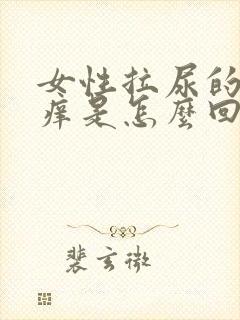 女性拉尿的
痒是怎麼回
裴玄微